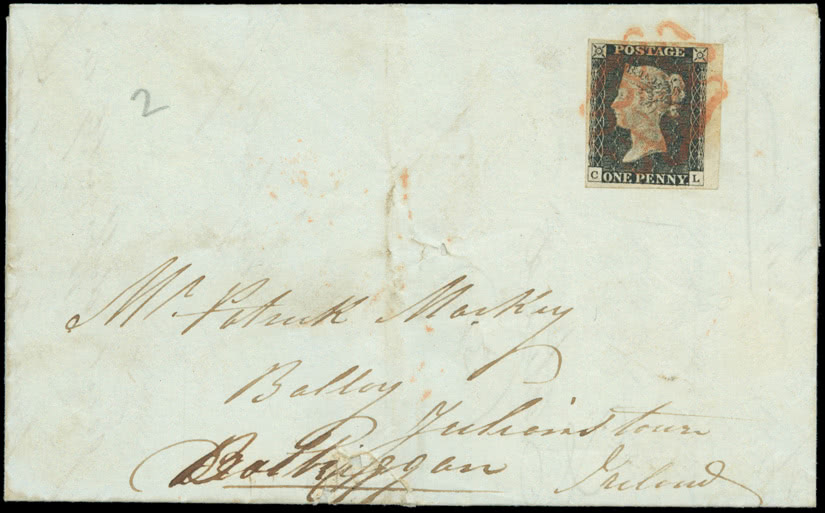 2
POSTAGE
C ONE PENNY. L
Mr. Patrick Markey
Balloy
Julianstown
Balbriggan
Ireland